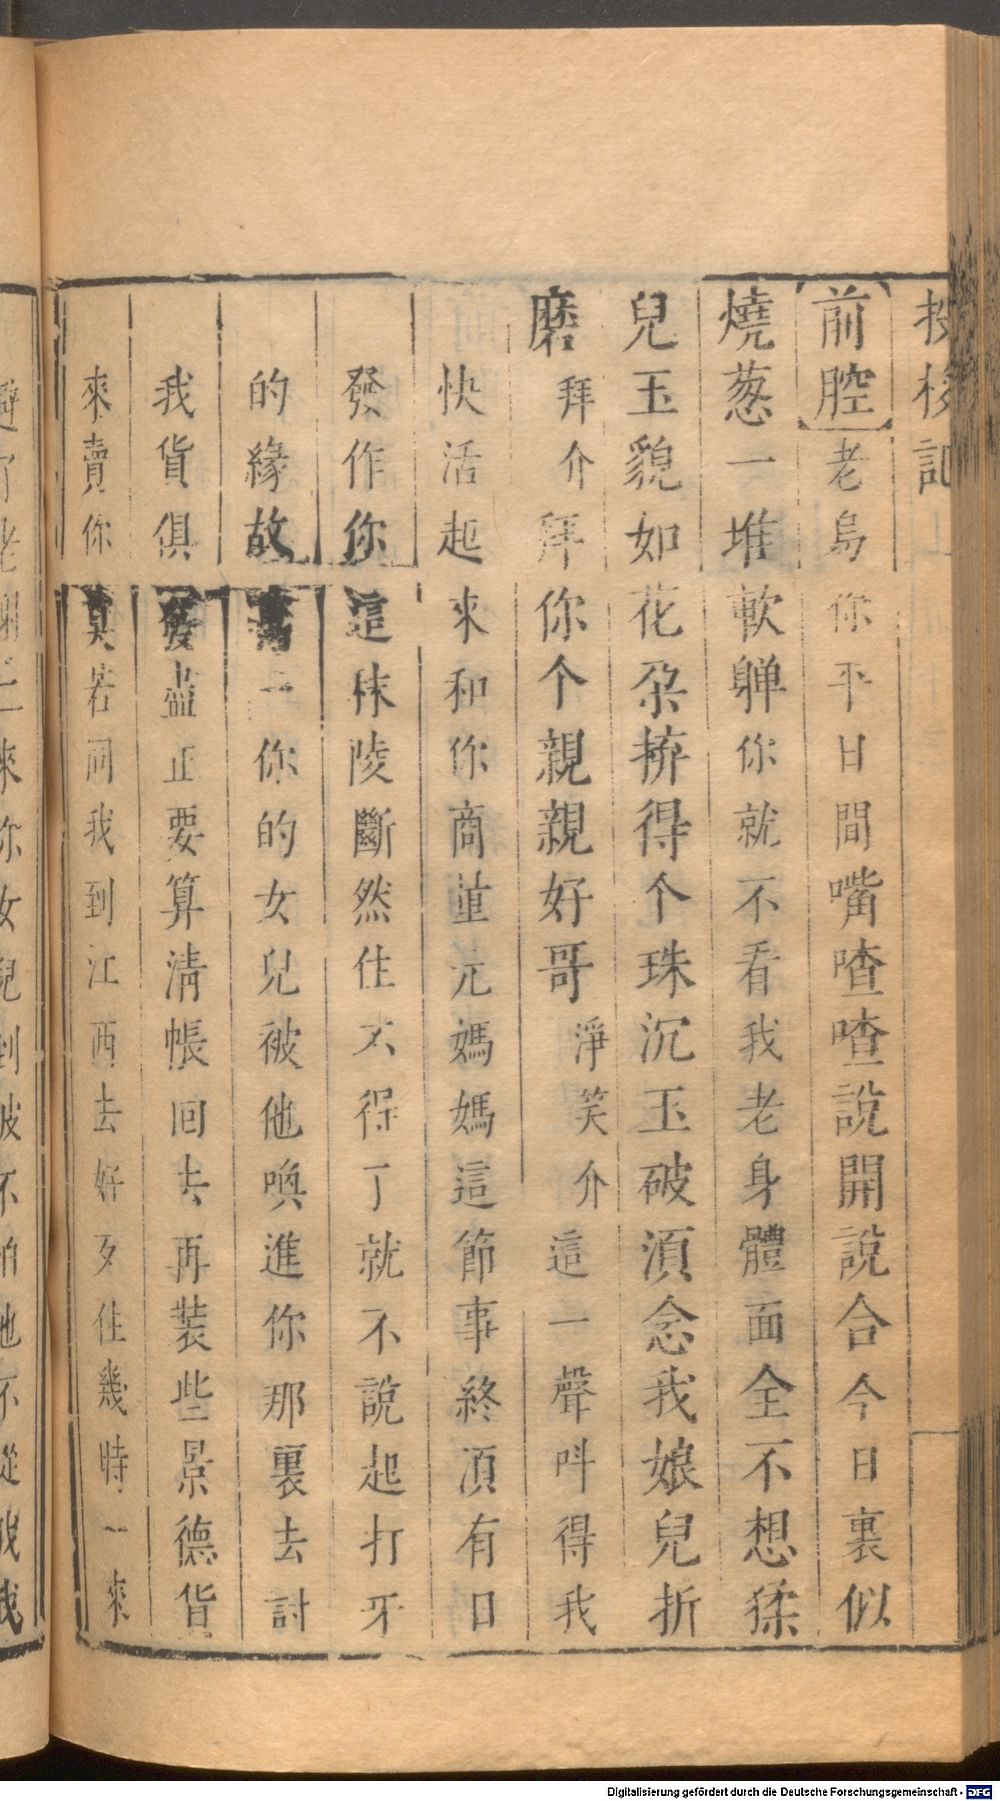 投梭記
前腔老鳥你平日間嘴喳喳說開說合今日裏似
燒葱一堆軟軃你就不看我老身體面全不想猱
兒玉貌如花朶𢬵得个珠沉玉破湏念我娘兒折
磨拜介拜你个親親好哥淨笑介這一聲呌得我
快活起來和你商量元媽媽這節事終湏有日
發作你這秣陵斷然住不得了就不說起打牙
的緣故你的女兒被他喚進你那裏去討
我貨俱發盡正要算清帳回去再裝些景德貨
來賣你莫若同我到江西去好歹住幾時一來
Digitalisierung gefördert durch die Deutsche Forschungsgemeinschaft - DFG